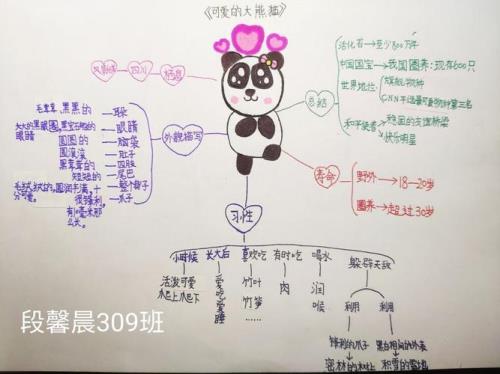 《可爱的大熊猫》
四川
栖息
外貌描写
毛茸茸,黑黑的
耳朵
大大的黑眼圈,黑宝石般的眼睛
眼睛
圆圆的
脑袋
圆滚滚
肚子
黑茸茸的
四肢
短短的
尾巴
毛绒绒的,圆润丰满,十分可爱。
整个身子
很锋利,
爪子
有1毫米那么大。
总结
活化石→至少800万年
中国国宝→我国圈养:现存600只
世界地位
旗舰物种
和平使者
稳固的友谊桥梁
快乐明星
寿命
野外→18—20岁
圈养→超过30岁
习性
小时候
长大后
喜欢吃
有时吃
喝水
躲避天敌
活泼可爱
爬上爬下
爱吃爱睡
竹叶
竹笋
……
肉
润喉
利用
利用
锋利的爪子
黑白相间的外表
密林的树上
积雪的雪地
段馨晨309班